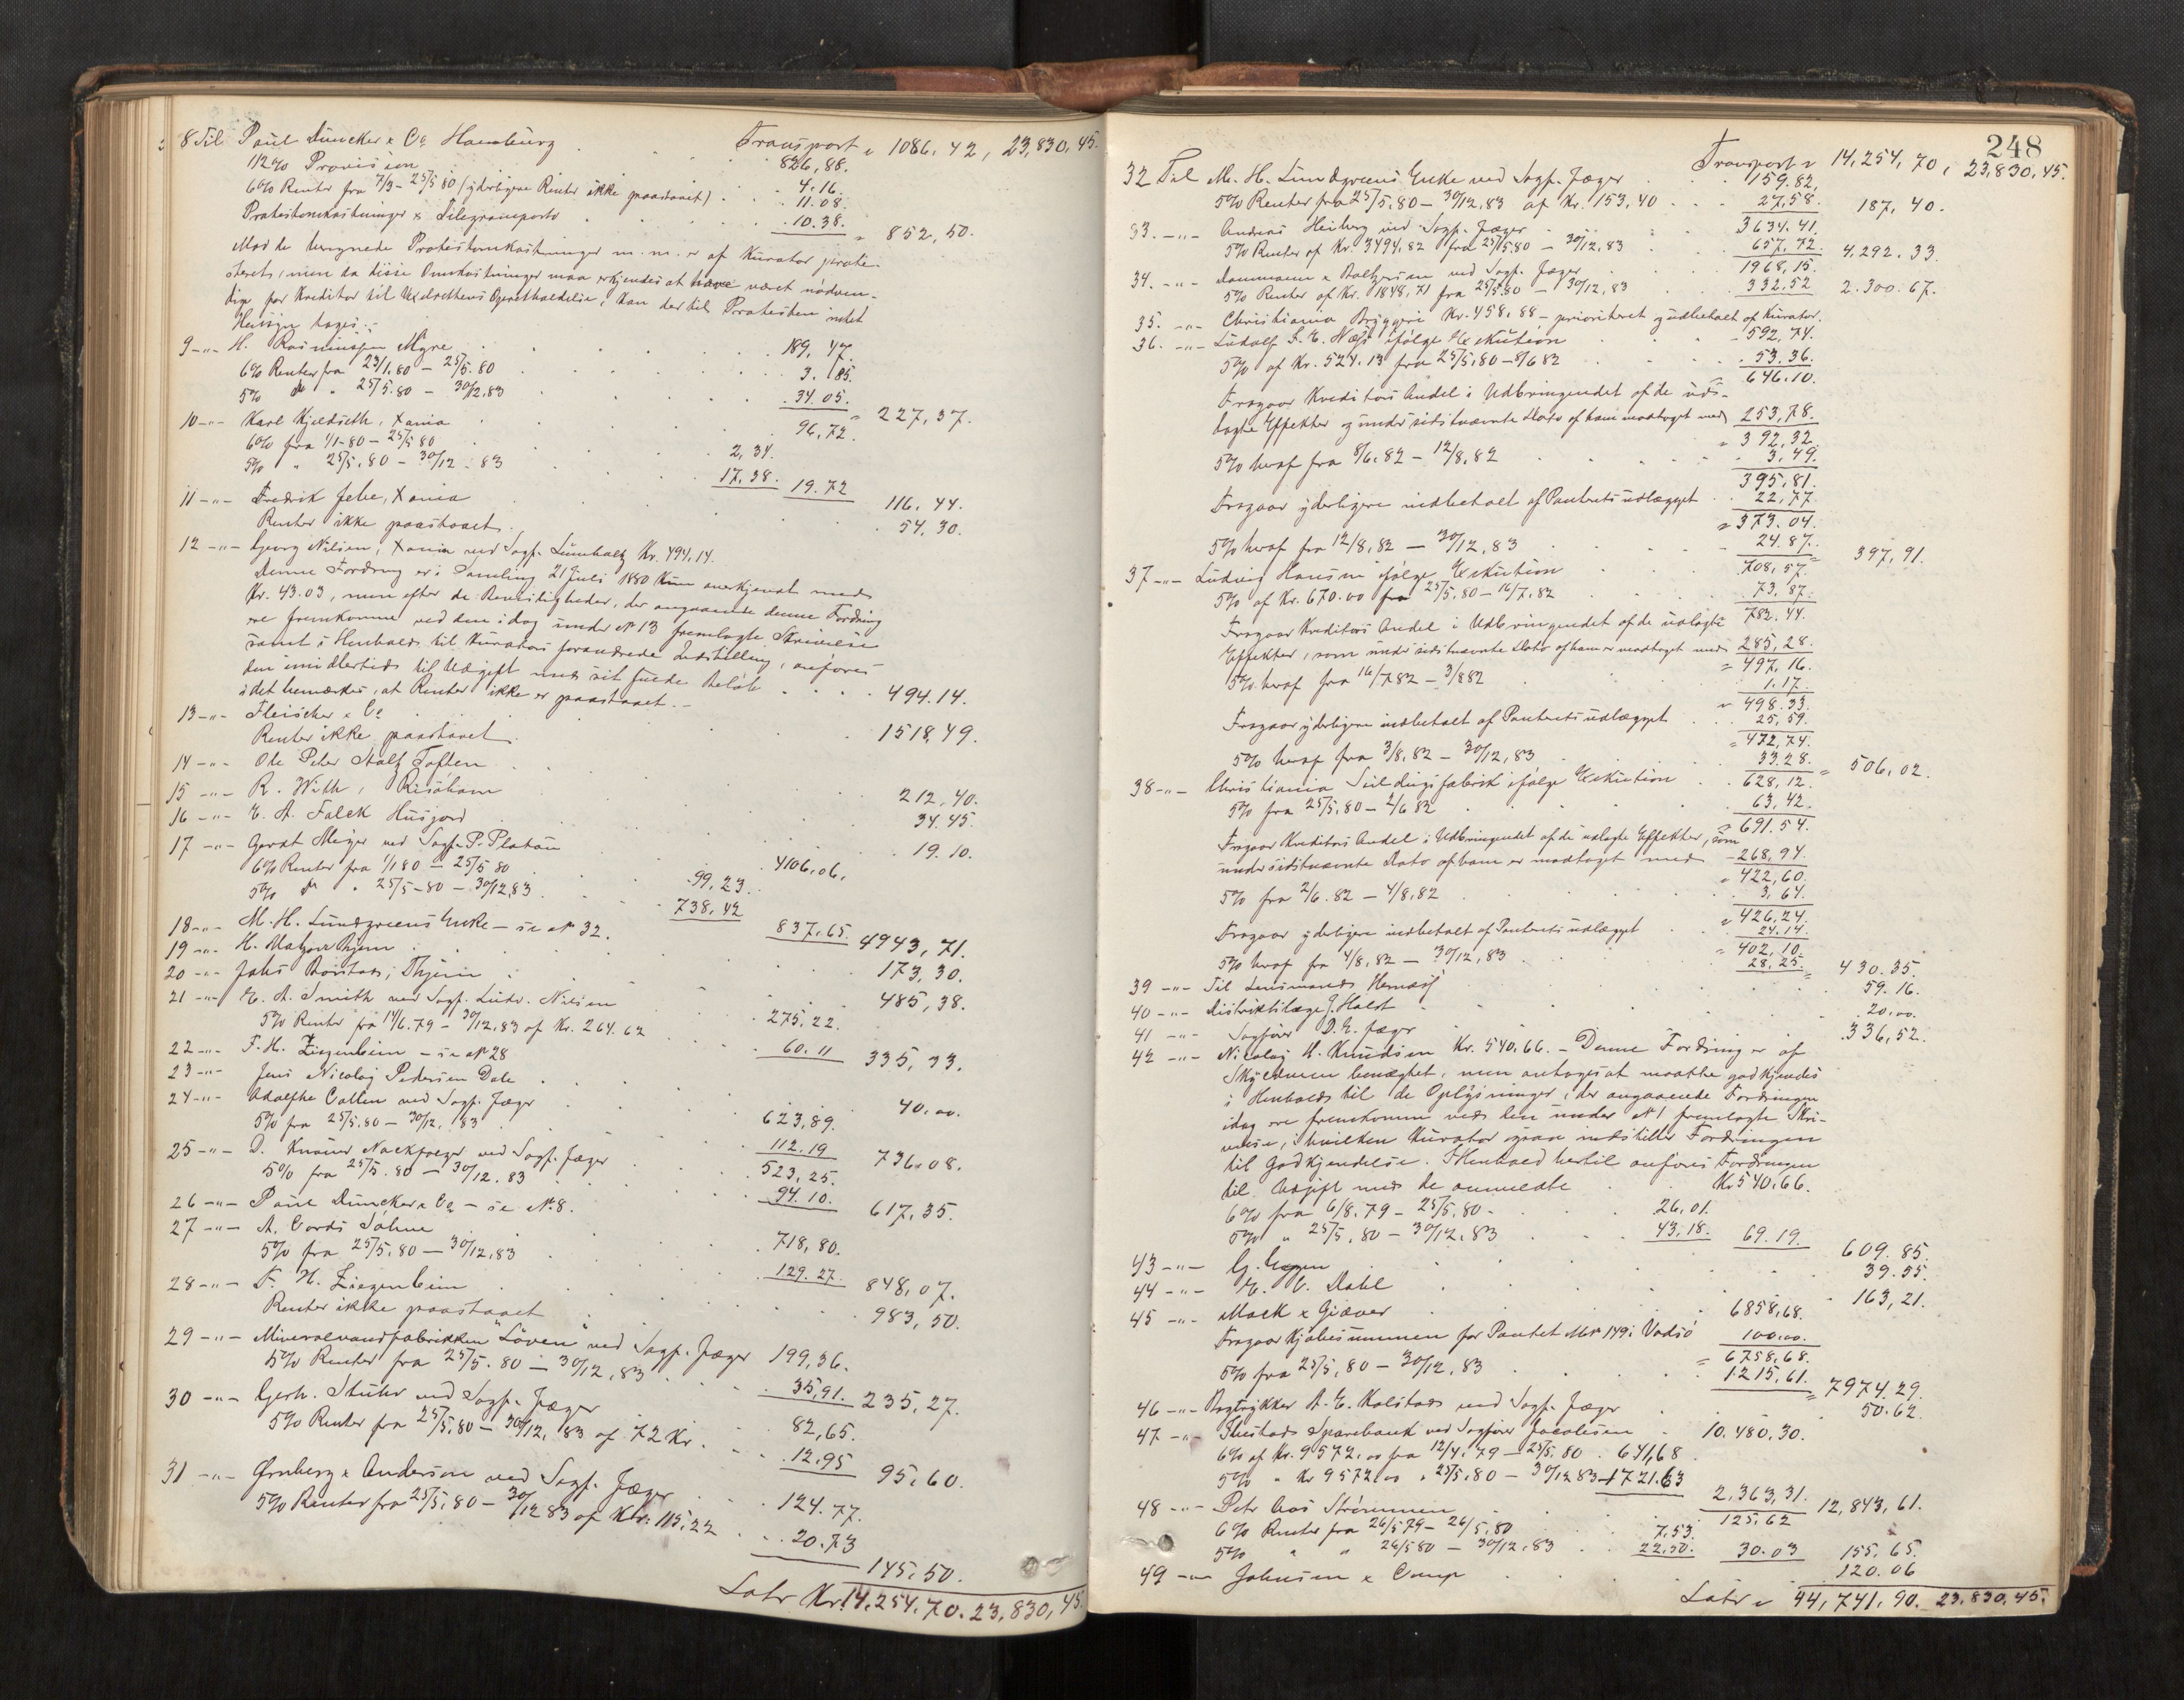 Transport " 1086. 42, 23,830,45.
8 Til Paul Duncker & Co Hamburg . . . 826,88.
1/2% Provision . . 4.16.
6% Renter fra 7/3 - 25/5 80 (yderligere Renter ikke paastaaet) . . 11.08.
Protestomkostninger & Telegramporto . . . 10.38. " 852,50.
Mod de beregnede Protestomkostninger m.m. er af Kurator prote-
steret, men da disse Omkostninger maa erkjendes at have været nødven-
dige for Kreditor til Vexelrettens Opretholdelse, kan der til Protesten intet
Hensyn tages.-
9 -"- H. Rasmussen Myre . . . 189,47.
6% Renter fra 23/1.80 - 25/5.80 . . . 3.85.
5% do " 25/5.80 - 30/12.83 . . . 34.05. " 227,37.
10 -"- Karl Kjeldseth, Xania . . . 96,72.
6% fra 1/1-80 - 25/5 80 . . 2,34.
5% " 25/5.80 - 30/12.83 . . 17.38. 19.72 116.44.
11 -"- Fredrik Jebe, Xania . . . 54,30.
Renter ikke paastaaet.
12 -"- Georg Nilsen, Xania ved Sagf. Lumholtz Kr. 494.14.
Denne Fordring er i Samling 21 Juli 1880 kun anerkjendt med
Kr. 43.03, men efter de Bevisligheder, der angaaende denne Fordring
ere fremkomne ved den idag under No 13 fremlagte Skrivelse
samt i Henhold til Kurators forandrede Indstilling, anføres
den imidlertid til Udgift med sit fulde Beløb . . . 494.14.
idet bemærkes, at Renter ikke er paastaaet.-
13 -"- Fleischer & Co . . . 1518,49.
Renter ikke paastaaet.
14 -"- Ole Peter Stolz Toften . . . 212,40.
15 -"- R. With, Risøhavn . . . 34.45.
16 -"- E. A. Falck Husjord . . . 19.10.
17 -"- Gerdt Meyer ved Sagf. P. Platou . . . 4106,06.
6% Renter fra 1/1 80 - 25/5 80 . . 99,23.
5% do " 25/5-80 - 30/12.83 . . 738,42 837,65. 4943,71.
18 -"- M. H. Lundgreens Enke - se No 32.
19 -"- H. . . . 173,30.
20 -"- Johs Borstad, Thjem . . . 485,38.
21 -"- E. A. Smith ved Sagf. Ludv. Nilsen . . 275,22.
5% Renter fra 14/6.79 - 30/12.83 af Kr. 264.62 . . 60.11 335,33.
22 -"- F. H. Ziegenbein - se No 28
23 -"- Jens Nicolaj Pedersen Dale . . . 40,00.
24 -"- Adolphe Collin ved Sagf. Jæger . . . 623,89.
5% fra 25/5.80 - 30/12.83 . . . 112.19 736.08.
25 -"- D. Knauer Nachfolger ved Sagf. Jæger . . 523,25.
5% fra 25/5.80 - 30/12.83 . . . 94.10. 617,35.
26 -"- Paul Duncker & Co - se No 8.
27 -"- A. Cords Söhne . . . 718,80.
5% fra 25/5.80 - 30/12.83 . . . 129.27. 848,07.
28 -"- F. H. Ziegenbein . . . 983,50.
Renter ikke paastaaet
29 -"- Mineralvandfabrikken "Löven" ved Sagf. Jæger 199,36.
5% Renter fra 25/5.80 - 30/12.83 . . . 35,91. 235,27.
30 -"- Gerh. Stuhr ved Sagf. Jæger . . 82,65.
5% Renter fra 25/5.80 - 30/12.83 af 72 Kr. . . 12,95 95,60.
31 -"- Ørnberg & Anderson ved Sagf. Jæger . . 124.77.
5% Renter fra 25/5.80 - 30/12 83 af Kr. 115,22 . . 20.73 145,50.
Latr Kr. 14,254.70. 23,830,45.
248
Transport " 14,254,70, 23,830,45.
32 Til M. H. Lundgreens Enke ved Sagf. Jæger . . 159.82,
5% Renter fra 25/5.80 - 30/12.83 af Kr. 153,40 . . . 27,58. 187,40.
33. -"- Andreas Heiberg ved Sagf. Jæger . . 3634.41.
5% Renter af Kr. 3494.82 fra 25/5 80 - 30/12.83 . 657,72. 4,292.33.
34. -"- Dammann & Baltzersen ved Sagf. Jæger . . 1968,15.
5% Renter af Kr. 1848,71 fra 25/5.80 - 30/12.83 . . 332,52 2.300.67.
35. -"- Christiania Bryggeri Kr. 458,88 - prioriteret & udbetalt af Kurator.
36. -"- Ludolf S. E. Næss ifølge Exekution . . - 592,74.
5% af Kr. 524.13 fra 25/5.80 - 8/6 82 . . . 53.36.
" 646.10.
Fragaar Kreditors Andel i Udbringendet af de ud-
lagte Effekter og under sidstnævnte Dato af ham modtaget med 253,78.
" 392,32.
5% heraf fra 8/6.82 - 12/8.82 . . . 3,49.
395,81.
Fragaar yderligere indbetalt af Panterets udlægget . . 22,77.
" 373.04.
5% heraf fra 12/8.82 - 30/12.83 . . . 24.87. " 397,91.
37 -"- Ludvig Hansen ifølge Exekution . . . 708,57.
5% af Kr. 670.00 fra 25/5.80 - 16/7.82 . . 73,87.
782.44.
Fragaar Kreditors Andel i Udbringendet af de udlagte
Effekter, som under sidstnævnte Dato af ham er modtaget med 285,28.
" 497,16.
5% heraf fra 16/7 82 - 3/8 82 . . . 1.17.
" 498.33.
Fragaar yderligere indbetalt af Panterets udlægget . . 25,59.
" 472,74.
5% heraf fra 3/8.82 - 30/12.83 . . . 33.28. " 506,02.
38 -"- Christiania Sildingsfabrik ifølge Exekution . . 628,12.
5% fra 25/5.80 - 2/6 82 . . . 63,42.
" 691.54.
Fragaar Kreditors Andel i Udbringendet af de udlagte Effekter, som
under sidstnævnte Dato af ham er modtaget med - 268,94.
" 422,60.
5% fra 2/6.82 - 4/8.82 . . . 3,64.
" 426,24.
Fragaar yderligere indbetalt af Panterets udlægget . . 24.14.
" 402,10.
5% heraf fra 4/8.82 - 30/12.83 . . . 28,25. " 430.35.
39 -"- Til Lensmand Hemsø . . . 59.16.
40 -"- Distriktslæge J. Holst . . . 20,00.
41 -"- Sagfører D. E. Jæger . . . 336,52.
42 -"- Nicolaj H. Knudsen Kr. 540,66. - Denne Fordring er af
Skyldneren benægtet, men antages at maatte godkjendes
i Henhold til de Oplysninger, der angaaende Fordringen
idag ere fremkomne ved den under No 1 fremlagte Skri-
velse, i hvilken Kurator ogsaa indstiller Fordringen
til Godkjendelse. I Henhold hertil anføres Fordringen
til Udgift med de anmeldte . . Kr 540,66.
6% fra 6/8.79 - 25/5.80 - . . . 26,01.
5% " 25/5.80 - 30/12.83 . . . 43,18. 69.19. 609.85.
43 -"- G. Eggen . . . 39.55.
44 -"- E. C. Dahl . . . 163,21.
45 -"- Mack & Giæver . . . 6858,68.
Fragaar Kjøbesummen for Pantet Mr 149 i Vadsö 100,00.
= 6758,68.
5% fra 25/5.80 - 30/12.83 . . . 1215,61. " 7974.29.
46 -"- Bogtrykker A. E. Kolstad ved Sagf. Jæger . . 50.62.
47 -"- Thustad Sparebank ved Sagfører Jacobsen . 10.480,30.
6% af Kr. 9572,00 fra 12/4.79 - 25/5.80 . 641,68
5% " Kr 9572,00 " 25/5.80 - 30/12 83 1721.63 2,363,31. 12,843,61.
48 -"- Petr Aas Strømmen . . . 125.62
6% Renter fra 26/5 79 - 26/5.80 . . 7,53.
5% " " 26/5 80 - 30/12.83 . . 22.50. 30.03 155,65.
49 -"- Johnsen & Comp . . . 120.06
Latr " 44,741.90. 23.830,45.